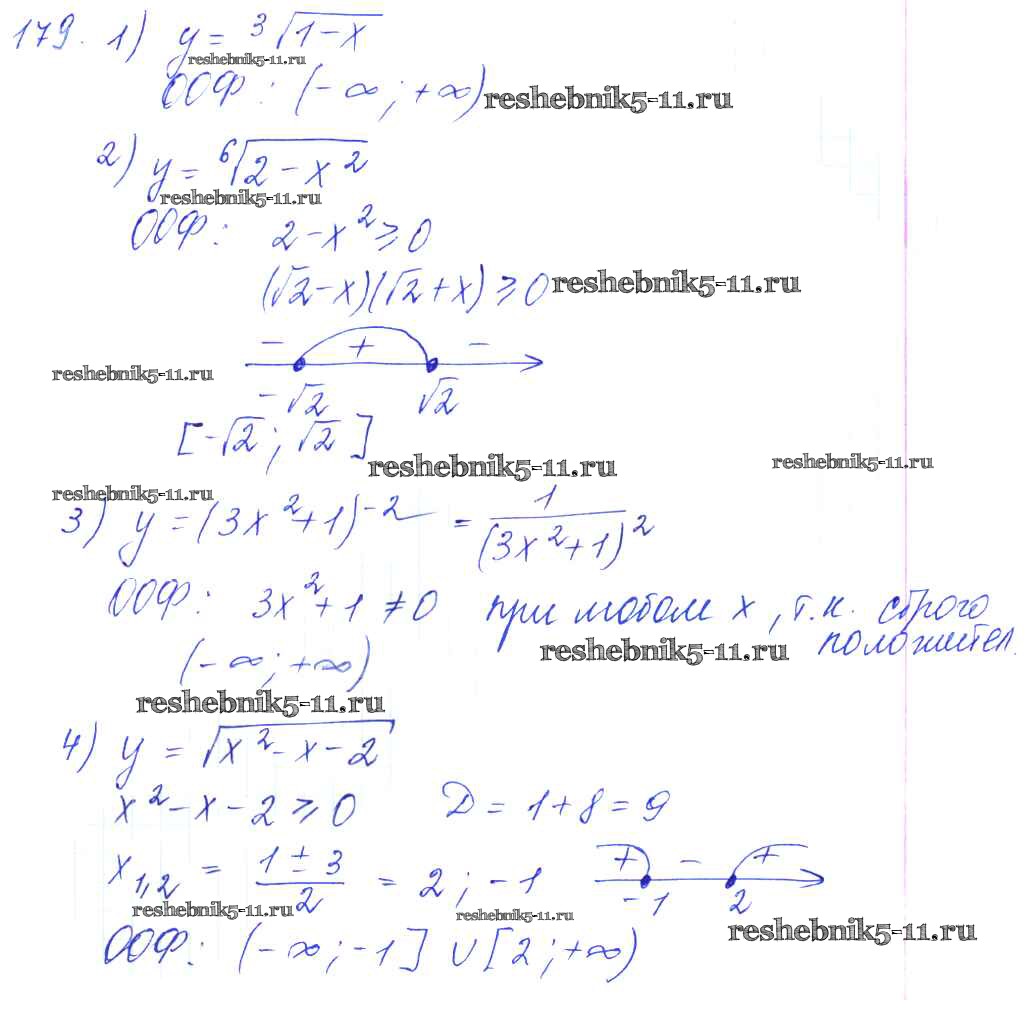 179. 1) y = ³√(1-x)
reshebnik5-11.ru
ООФ: (-∞; +∞) reshebnik5-11.ru
2) y = ⁶√(2-x²)
reshebnik5-11.ru
ООФ: 2-x² ≥ 0
(√2-x)(√2+x) ≥ 0 reshebnik5-11.ru
- + -
reshebnik5-11.ru
-√2 √2
[-√2; √2]
reshebnik5-11.ru reshebnik5-11.ru
reshebnik5-11.ru
3) y = (3x²+1)⁻² = 1/(3x²+1)²
ООФ: 3x²+1 ≠ 0 при любом x, т.к. строго
reshebnik5-11.ru положител.
(-∞; +∞)
reshebnik5-11.ru
4) y = √(x²-x-2)
x²-x-2 ≥ 0 D = 1+8 = 9
x₁,₂ = (1±3)/2 = 2; -1 + - +
-1 2
reshebnik5-11.ru reshebnik5-11.ru reshebnik5-11.ru
ООФ: (-∞; -1] ∪ [2; +∞)